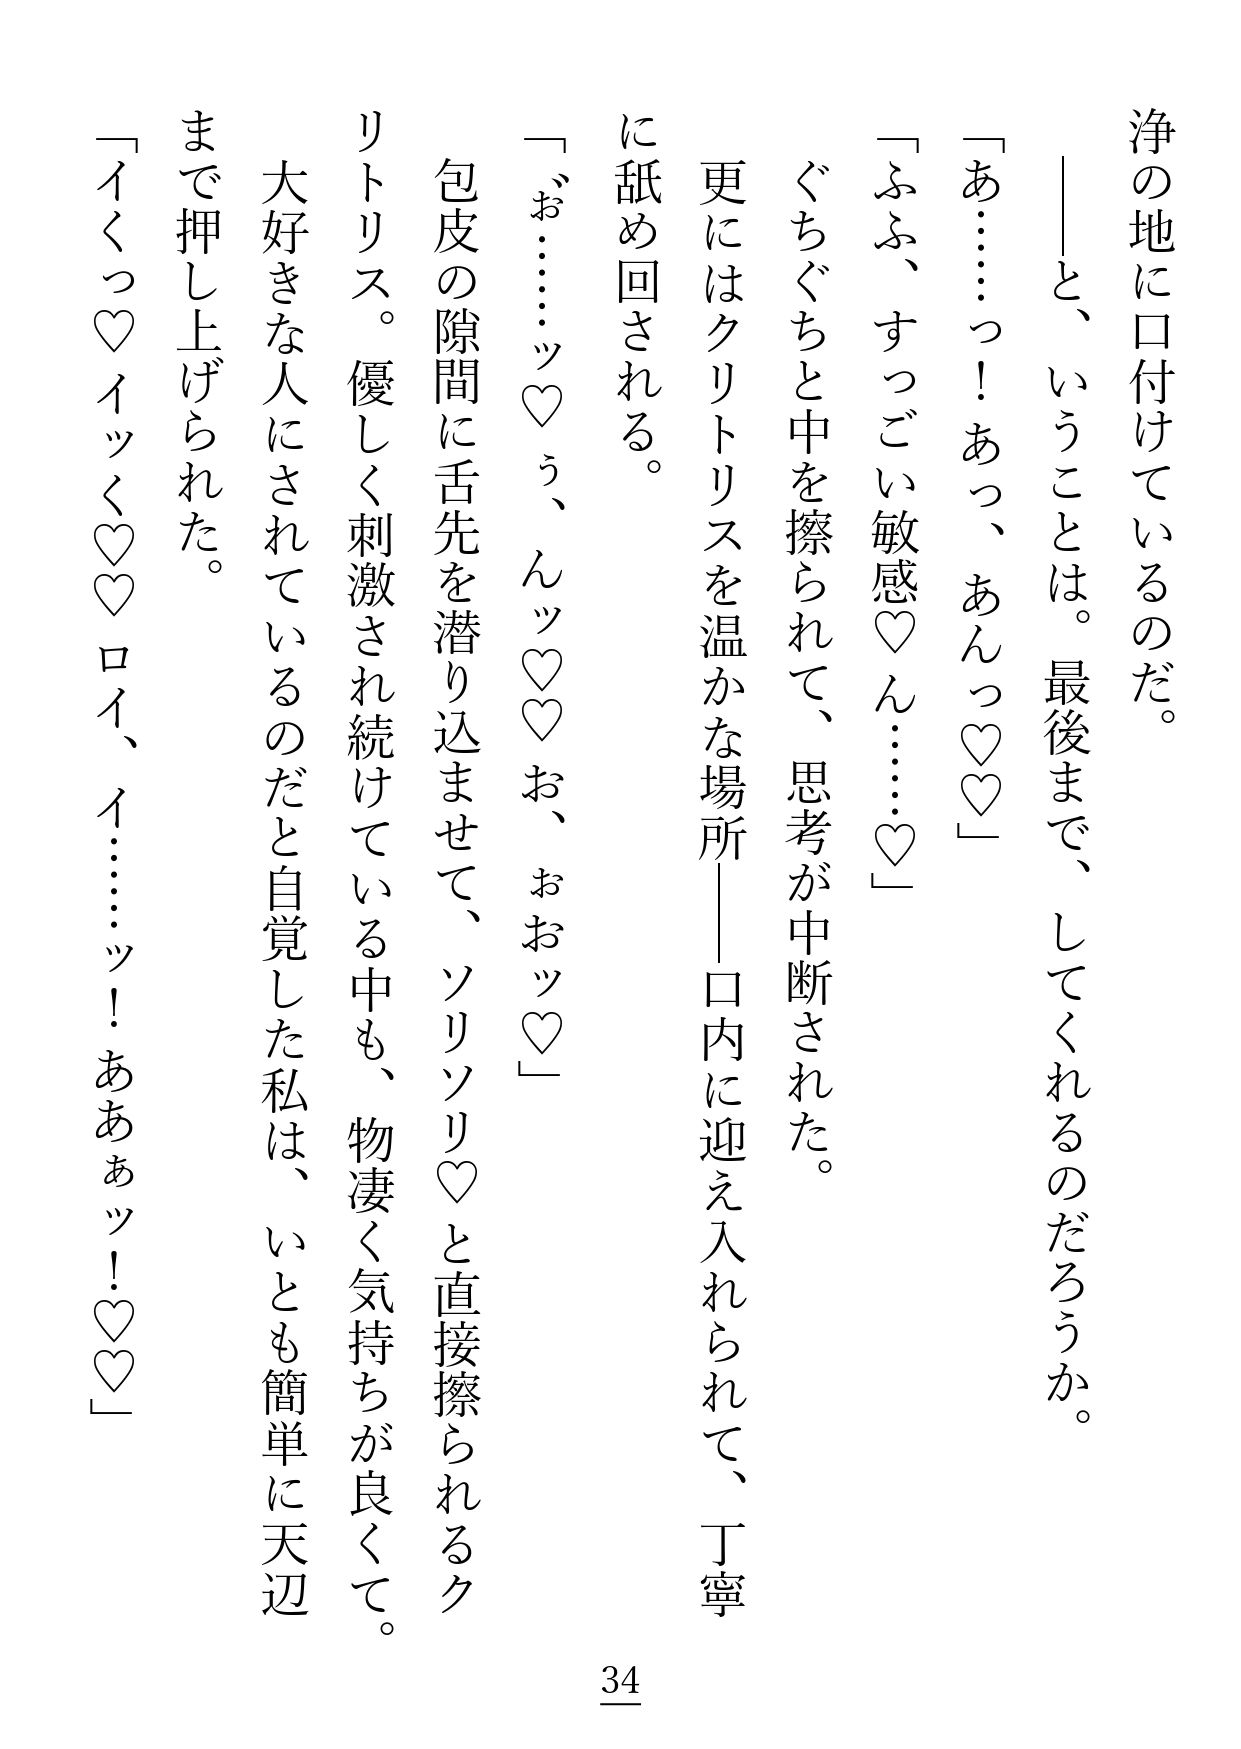 浄の地に口付けているのだ。
――と、いうことは。最後まで、してくれるのだろうか。
「あ……っ！あっ、あんっ♡♡」
「ふふ、すっごい敏感♡ん……♡」
ぐちぐちと中を擦られて、思考が中断された。
更にはクリトリスを温かな場所――口内に迎え入れられて、丁寧
に舐め回される。
「ぉ゛……ッ♡ぅ、んッ♡♡お、ぉおッ♡」
包皮の隙間に舌先を潜り込ませて、ソリソリ♡と直接擦られるク
リトリス。優しく刺激され続けている中も、物凄く気持ちが良くて。
大好きな人にされているのだと自覚した私は、いとも簡単に天辺
まで押し上げられた。
「イくっ♡イッく♡♡ロイ、イ……ッ！ああぁッ！♡♡」
34